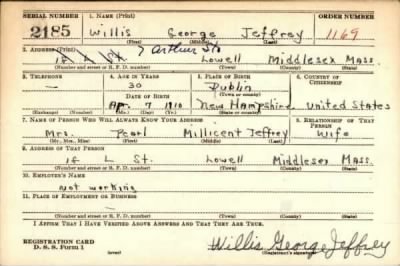 SERIAL NUMBER 1. NAME (Print) ORDER NUMBER
2185 Willis George Jeffrey 1169
(First) (Middle) (Last)
2. ADDRESS (Print) 7 Arthur St.
Lowell Middlesex Mass.
(Number and street or R. F. D. number) (Town) (County) (State)
3. TELEPHONE 4. AGE IN YEARS 5. PLACE OF BIRTH 6. COUNTRY OF CITIZENSHIP
— 30 Dublin
DATE OF BIRTH (Town or county)
Apr. 7 1910 New Hampshire United States
(Exchange) (Number) (Mo.) (Day) (Yr.) (State or country)
7. NAME OF PERSON WHO WILL ALWAYS KNOW YOUR ADDRESS 8. RELATIONSHIP OF THAT PERSON
Mrs. Pearl Millicent Jeffrey Wife
(Mr., Mrs., Miss) (First) (Middle) (Last)
9. ADDRESS OF THAT PERSON
18 L St. Lowell Middlesex Mass.
(Number and street or R. F. D. number) (Town) (County) (State)
10. EMPLOYER'S NAME
Not working
11. PLACE OF EMPLOYMENT OR BUSINESS
(Number and street or R. F. D. number) (Town) (County) (State)
I AFFIRM THAT I HAVE VERIFIED ABOVE ANSWERS AND THAT THEY ARE TRUE.
REGISTRATION CARD
D. S. S. Form 1 (over) Willis George Jeffrey
(Registrant's signature)